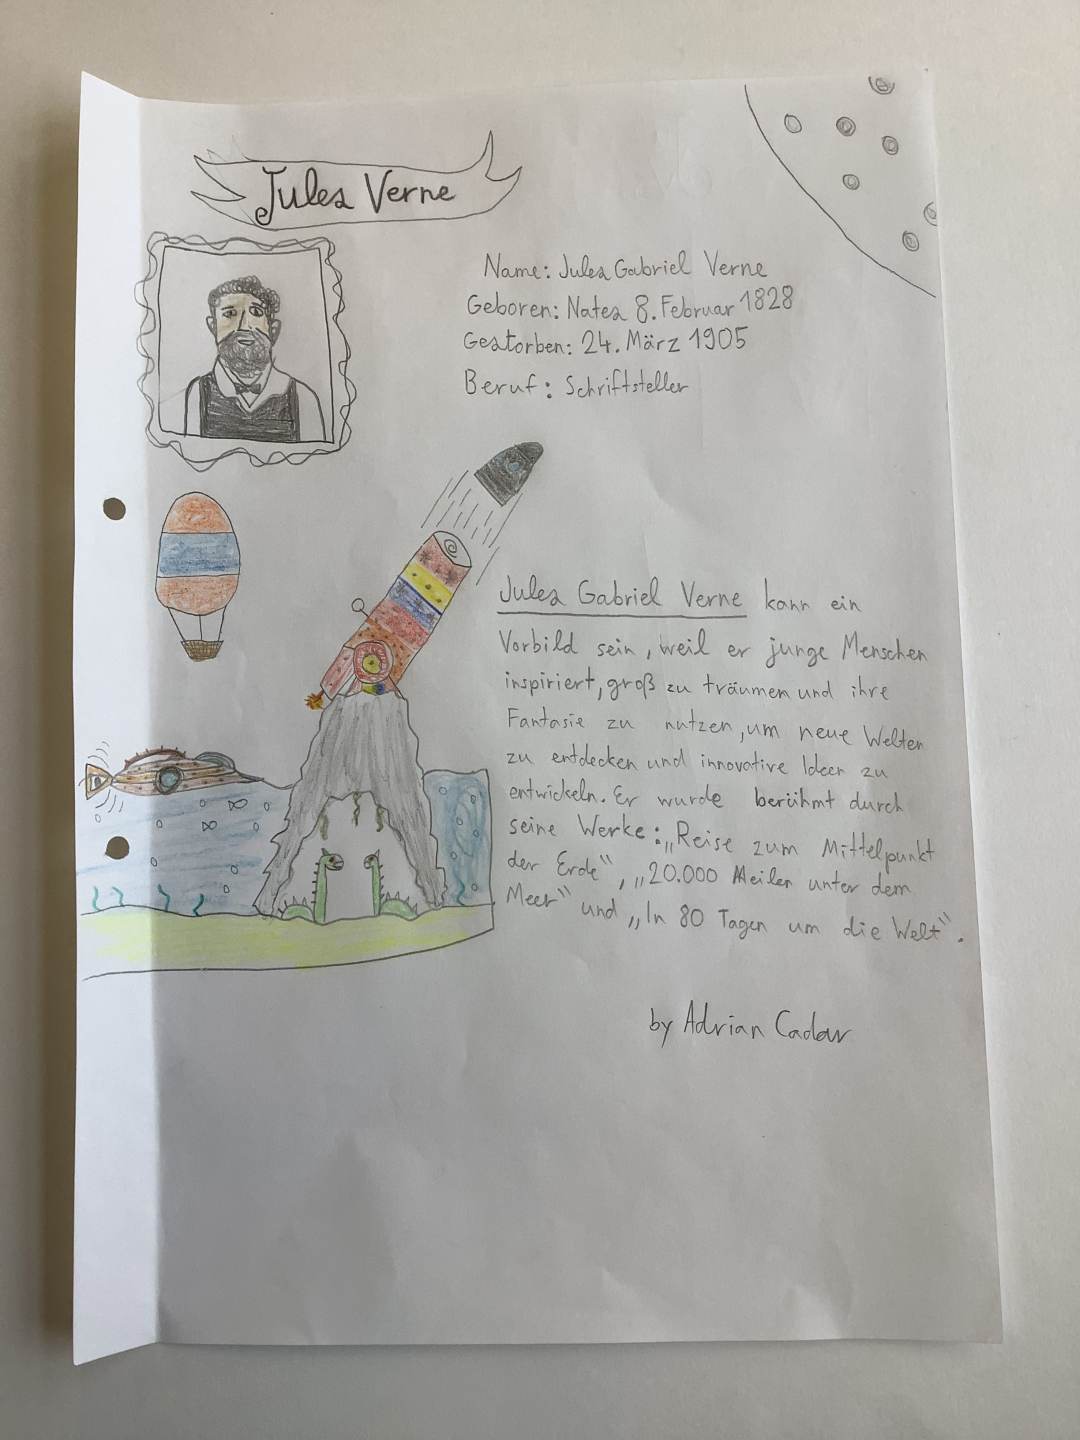 Jules Verne
Name: Jules Gabriel Verne
Geboren: Nates 8. Februar 1828
Gestorben: 24. März 1905
Beruf: Schriftsteller
Jules Gabriel Verne kann ein
Vorbild sein, weil er junge Menschen
inspiriert, groß zu träumen und ihre
Fantasie zu nutzen, um neue Welten
zu entdecken und innovative Ideen zu
entwickeln. Er wurde berühmt durch
seine Werke: „Reise zum Mittelpunkt
der Erde“, „20.000 Meilen unter dem
Meer“ und „In 80 Tagen um die Welt“.
by Adrian Cadar